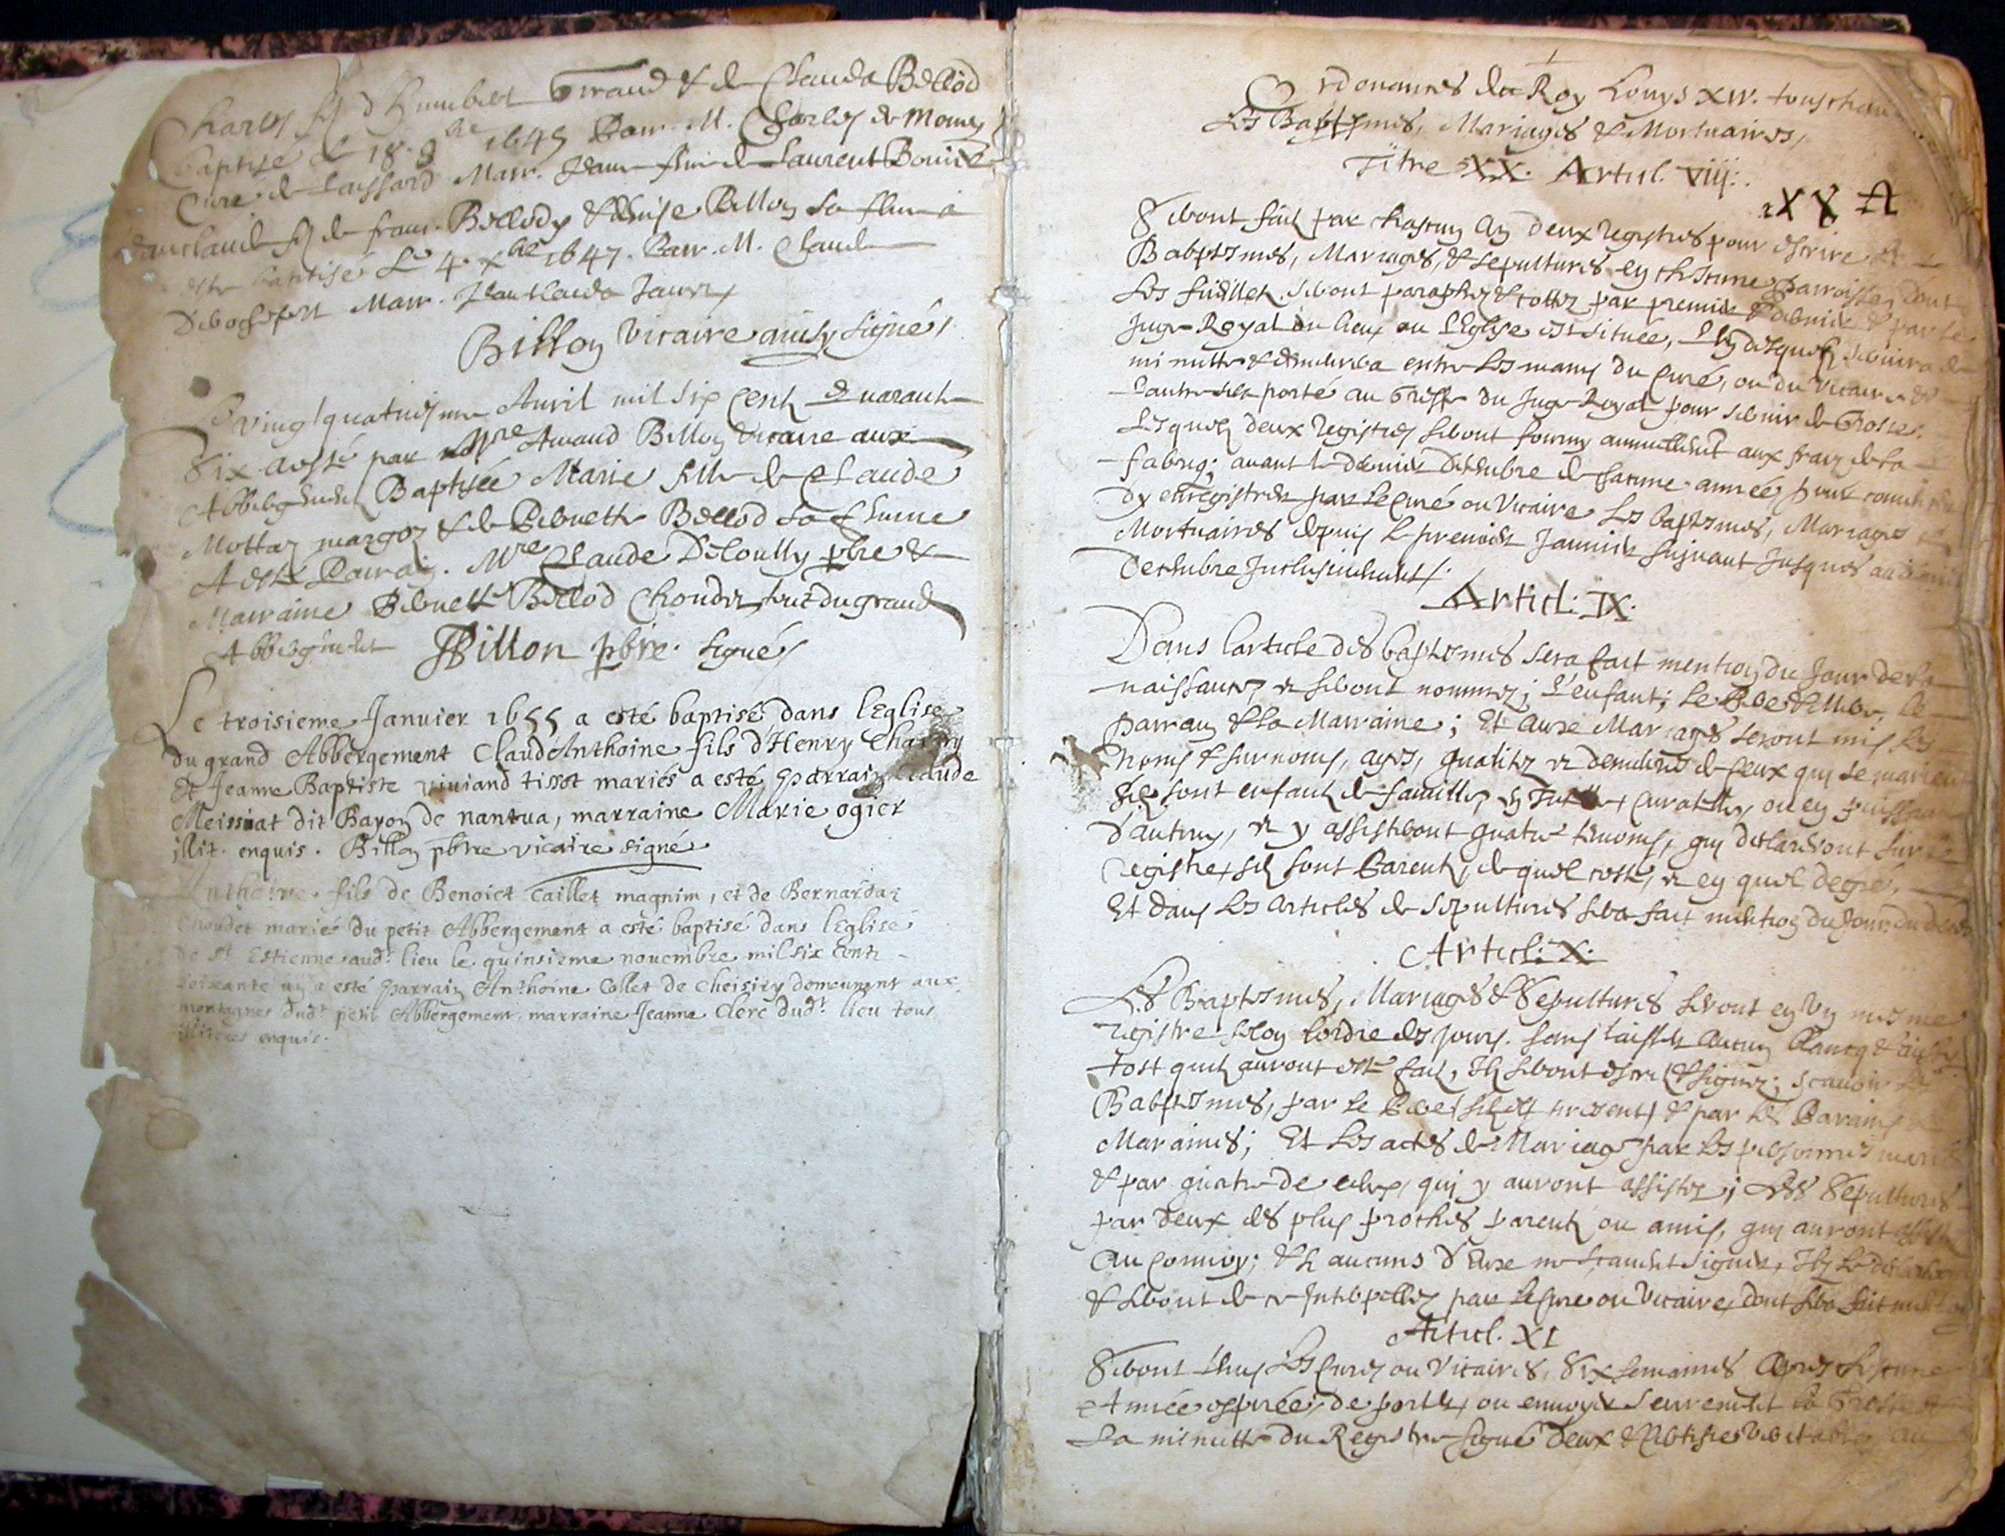 Charles fs d'Humbert Giraud & de Claude Bellod
baptisé le 18. 9bre 1645 Parr. M. Charles de
Curé de Marr. Jeane fille de Laurent
claude fs de franc. Bellod & Billon sa feme a
esté baptisé Le 4. xbre 1647. Parr. M. Claude
Marr. Jeanclauda
Billon vicaire ainsy signé
Avril mil six cent quarante
Six a esté par Mre Billon vicaire aux
Abbergements Baptisée Marie fille de Claude
& de Pernette Bellod sa femme
A esté Parrain. Mre Claude Deloully pbre &
Marraine Pernette Bellod Choudet tous du grand
Abbergement Billon pbre. signé
Le troisieme Januier 1655 a esté baptisé dans lEglise
du grand Abbergement ClaudAnthoine fils d'Henry
Et Jeanne Baptiste viuiand tissot mariés a esté parrain Claude
Meissiat dit Baron de nantua, marraine Marie ogier
illit. enquis. Billon pbre vicaire signé
Anthoine fils de Benoict Caillet magnim, et de Bernarda
Choudet mariés du petit Abbergement a esté baptisé dans lEglise
de St Estienne aud. lieu le quinsieme nouembre mil six cent
soixante un a esté parrain Anthoine Collet de Cheisiry demeurant aux
montagnes dudt petit Abbergement. marraine Jeanne Clerc dudt. lieu tous
illiteres enquis.
Ordonances du Roy Louys XIV. touschant
Les Baptesmes, Mariages & Mortuaires,
Titre XX. Articl. VIII.
XX A
Seront faitz par chascun an deux registres pour escrire les
Baptesmes, Mariages, & sepultures en chascune parroisse, dont
Les fueillets seront paraphez & cottez par premier & dernier & par le
Juge Royal du lieu ou l'Eglise est située, L'un desquels seruira de
minutte & demeurera entre les mains du Curé, ou du Vicaire &
L'autre sera porté au Greffe du Juge Royal pour seruir de Grosse.
Lesquels deux registres seront fournis annuellement aux frais de la
fabriq; auant le dernier Decembre de chacune année, pour commencer
dy enregistrer par le Curé ou Vicaire les baptesmes, Mariages &
Mortuaires depuis le premier Januier suiuant Jusques au dernier
Decembre Inclusiuement.
Articl: IX.
Dans larticle des baptesmes sera fait mention du Jour de la
naissance & seront nommez; L'enfant; Le Pere & Mere, Le
parrain & la Marraine; Et aux Mariages seront mis les
Noms & surnoms, ages, qualitez & demeures de ceux qui se marient
S'ils sont enfants de famille, en Tutelle, Curatelle, ou en puissance
d'autruy, & y assisteront quatre temoins, qui declareront sur le
registre, sils sont Parents, de quel costé, & en quel degré.
Et dans les articles de sepultures sera fait mention du Jour du deces
Articl: X.
Les Baptesmes, Mariages & Sepultures seront en un mesme
registre selon lordre des jours sans laisser aucun blancq & aussy
tost quils auront esté faits, Ils seront escrits & signez; scauoir les
Baptesmes, par le Pere sil est present & par les Parains &
Maraines; Et les actes de Mariage par les personnes mariées
& par quatre de ceux, qui y auront assistez; Les Sepultures
par deux des plus proches parents ou amis, qui auront assisté
Au Conuoy; & si aucuns d'Eux ne scauent signer, Ils le declareront
& seront de ce Interpellez par le Curé ou Vicaire, dont sera fait mention
Articl. XI
Seront tenus Les Curez ou Vicaires, Six semaines Apres chascune
Année expirée, de porter, ou enuoyer seurement la Grosse &
La minutte du Registre signé d'eux & Certifié veritable, au